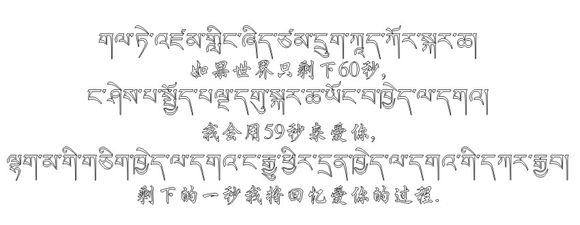 གལ་ཏེ་འཛམ་གླིང་ཞིད་ཙམ་དྲུག་ཀཱད་ཀོར་སྐར་ཆ།
如果世界只剩下60秒,
ང་ཤེས་པ་སྤྱོད་པལྔ་དགུ་སྐར་ཆ་ཡོང་བ།ཁྱེད་ལ་དགའ།
我会用59秒来爱你,
ལྷག་མ་གི་གཅིག་ཁྱེད་ལ་དགའ་ང་རྒྱུ་ཕྱིར་དྲན་ཁྱེད་ལ་དགའ་གི་དཀར་རྒྱབ།
剩下的一秒我将回忆爱你的过程.